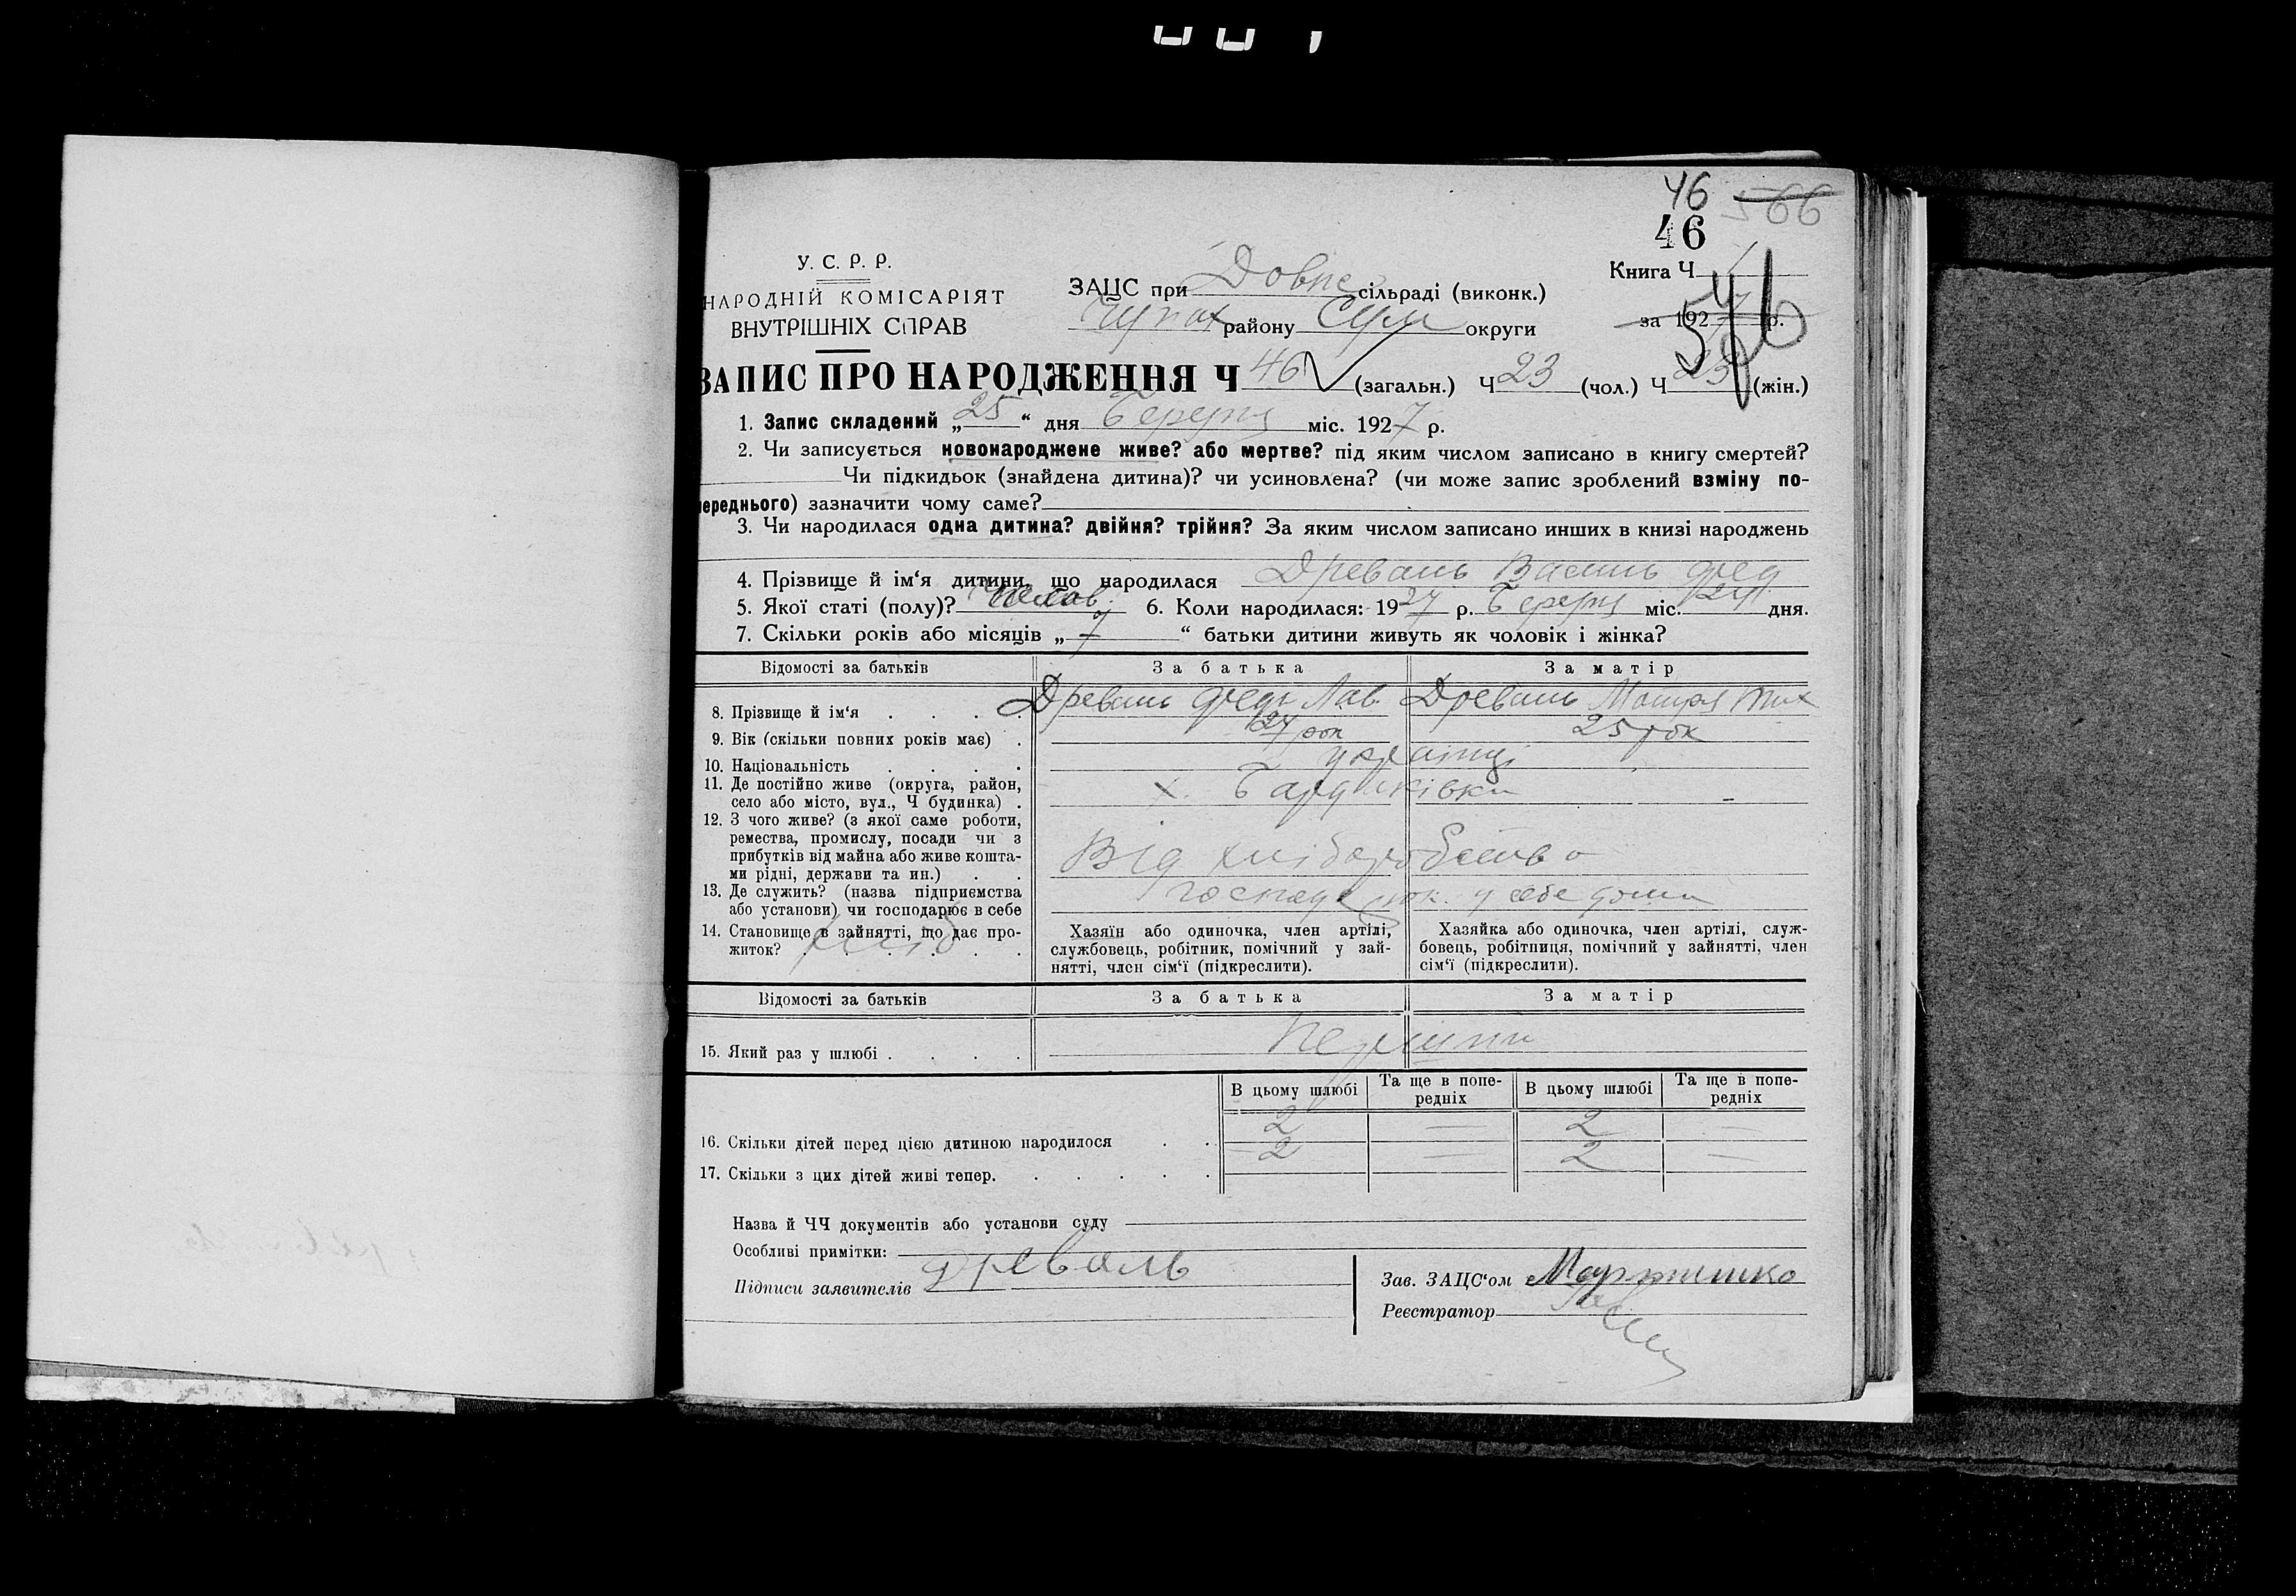 46 566
46
У. С. Р. Р.
НАРОДНІЙ КОМІСАРІЯТ
ВНУТРІШНІХ СПРАВ
ЗАЦС при Довж сільраді (виконк.)
Чупах району Сум округи
Книга Ч
за 1927 р.
546
ЗАПИС ПРО НАРОДЖЕННЯ Ч 46 (загальн.) Ч 23 (чол.) Ч 23 (жін.)
1. Запис складений „25“ дня Березня міс. 1927 р.
2. Чи записується новонароджене живе? або мертве? під яким числом записано в книгу смертей?
Чи підкидьок (знайдена дитина)? чи усиновлена? (чи може запис зроблений взміну по-
переднього) зазначити чому саме?
3. Чи народилася одна дитина? двійня? трійня? За яким числом записано инших в книзі народжень
4. Прізвище й ім‘я дитини, що народилася Древаль Василь Фед
5. Якої статі (полу)? Чолов 6. Коли народилася: 1927 р. Березня міс. 24 дня.
7. Скільки років або місяців „7“ батьки дитини живуть як чоловік і жінка?
Відомості за батьків За батька За матір
8. Прізвище й ім‘я Древаль Федь Лав. Древаль Мотря Тих
9. Вік (скільки повних років має) 27 рок 25 рок
10. Національність українці
11. Де постійно живе (округа, район,
село або місто, вул., Ч будинка) х.
12. З чого живе? (з якої саме роботи,
ремества, промислу, посади чи з
прибутків від майна або живе кошта-
ми рідні, держави та ин.) Від хліборобства
13. Де служить? (назва підприємства
або установи) чи господарює в себе господарюк. у себе дома
14. Становище в зайнятті, що дає про-
житок?
Хазяїн або одиночка, член артілі,
службовець, робітник, помічний у зай-
нятті, член сім‘ї (підкреслити).
Хазяйка або одиночка, член артілі, служ-
бовець, робітниця, помічний у зайнятті, член
сім‘ї (підкреслити).
Відомості за батьків За батька За матір
15. Який раз у шлюбі
В цьому шлюбі Та ще в попе-
редніх В цьому шлюбі Та ще в попе-
редніх
16. Скільки дітей перед цією дитиною народилося 2 — 2 —
17. Скільки з цих дітей живі тепер. 2 — 2 —
Назва й ЧЧ документів або установи суду
Особливі примітки:
Підписи заявителів Древаль
Зав. ЗАЦС‘ом
Реєстратор